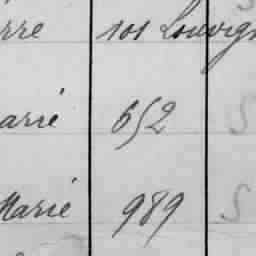 rre 101 Louvign
arié 652
Marié 989 S